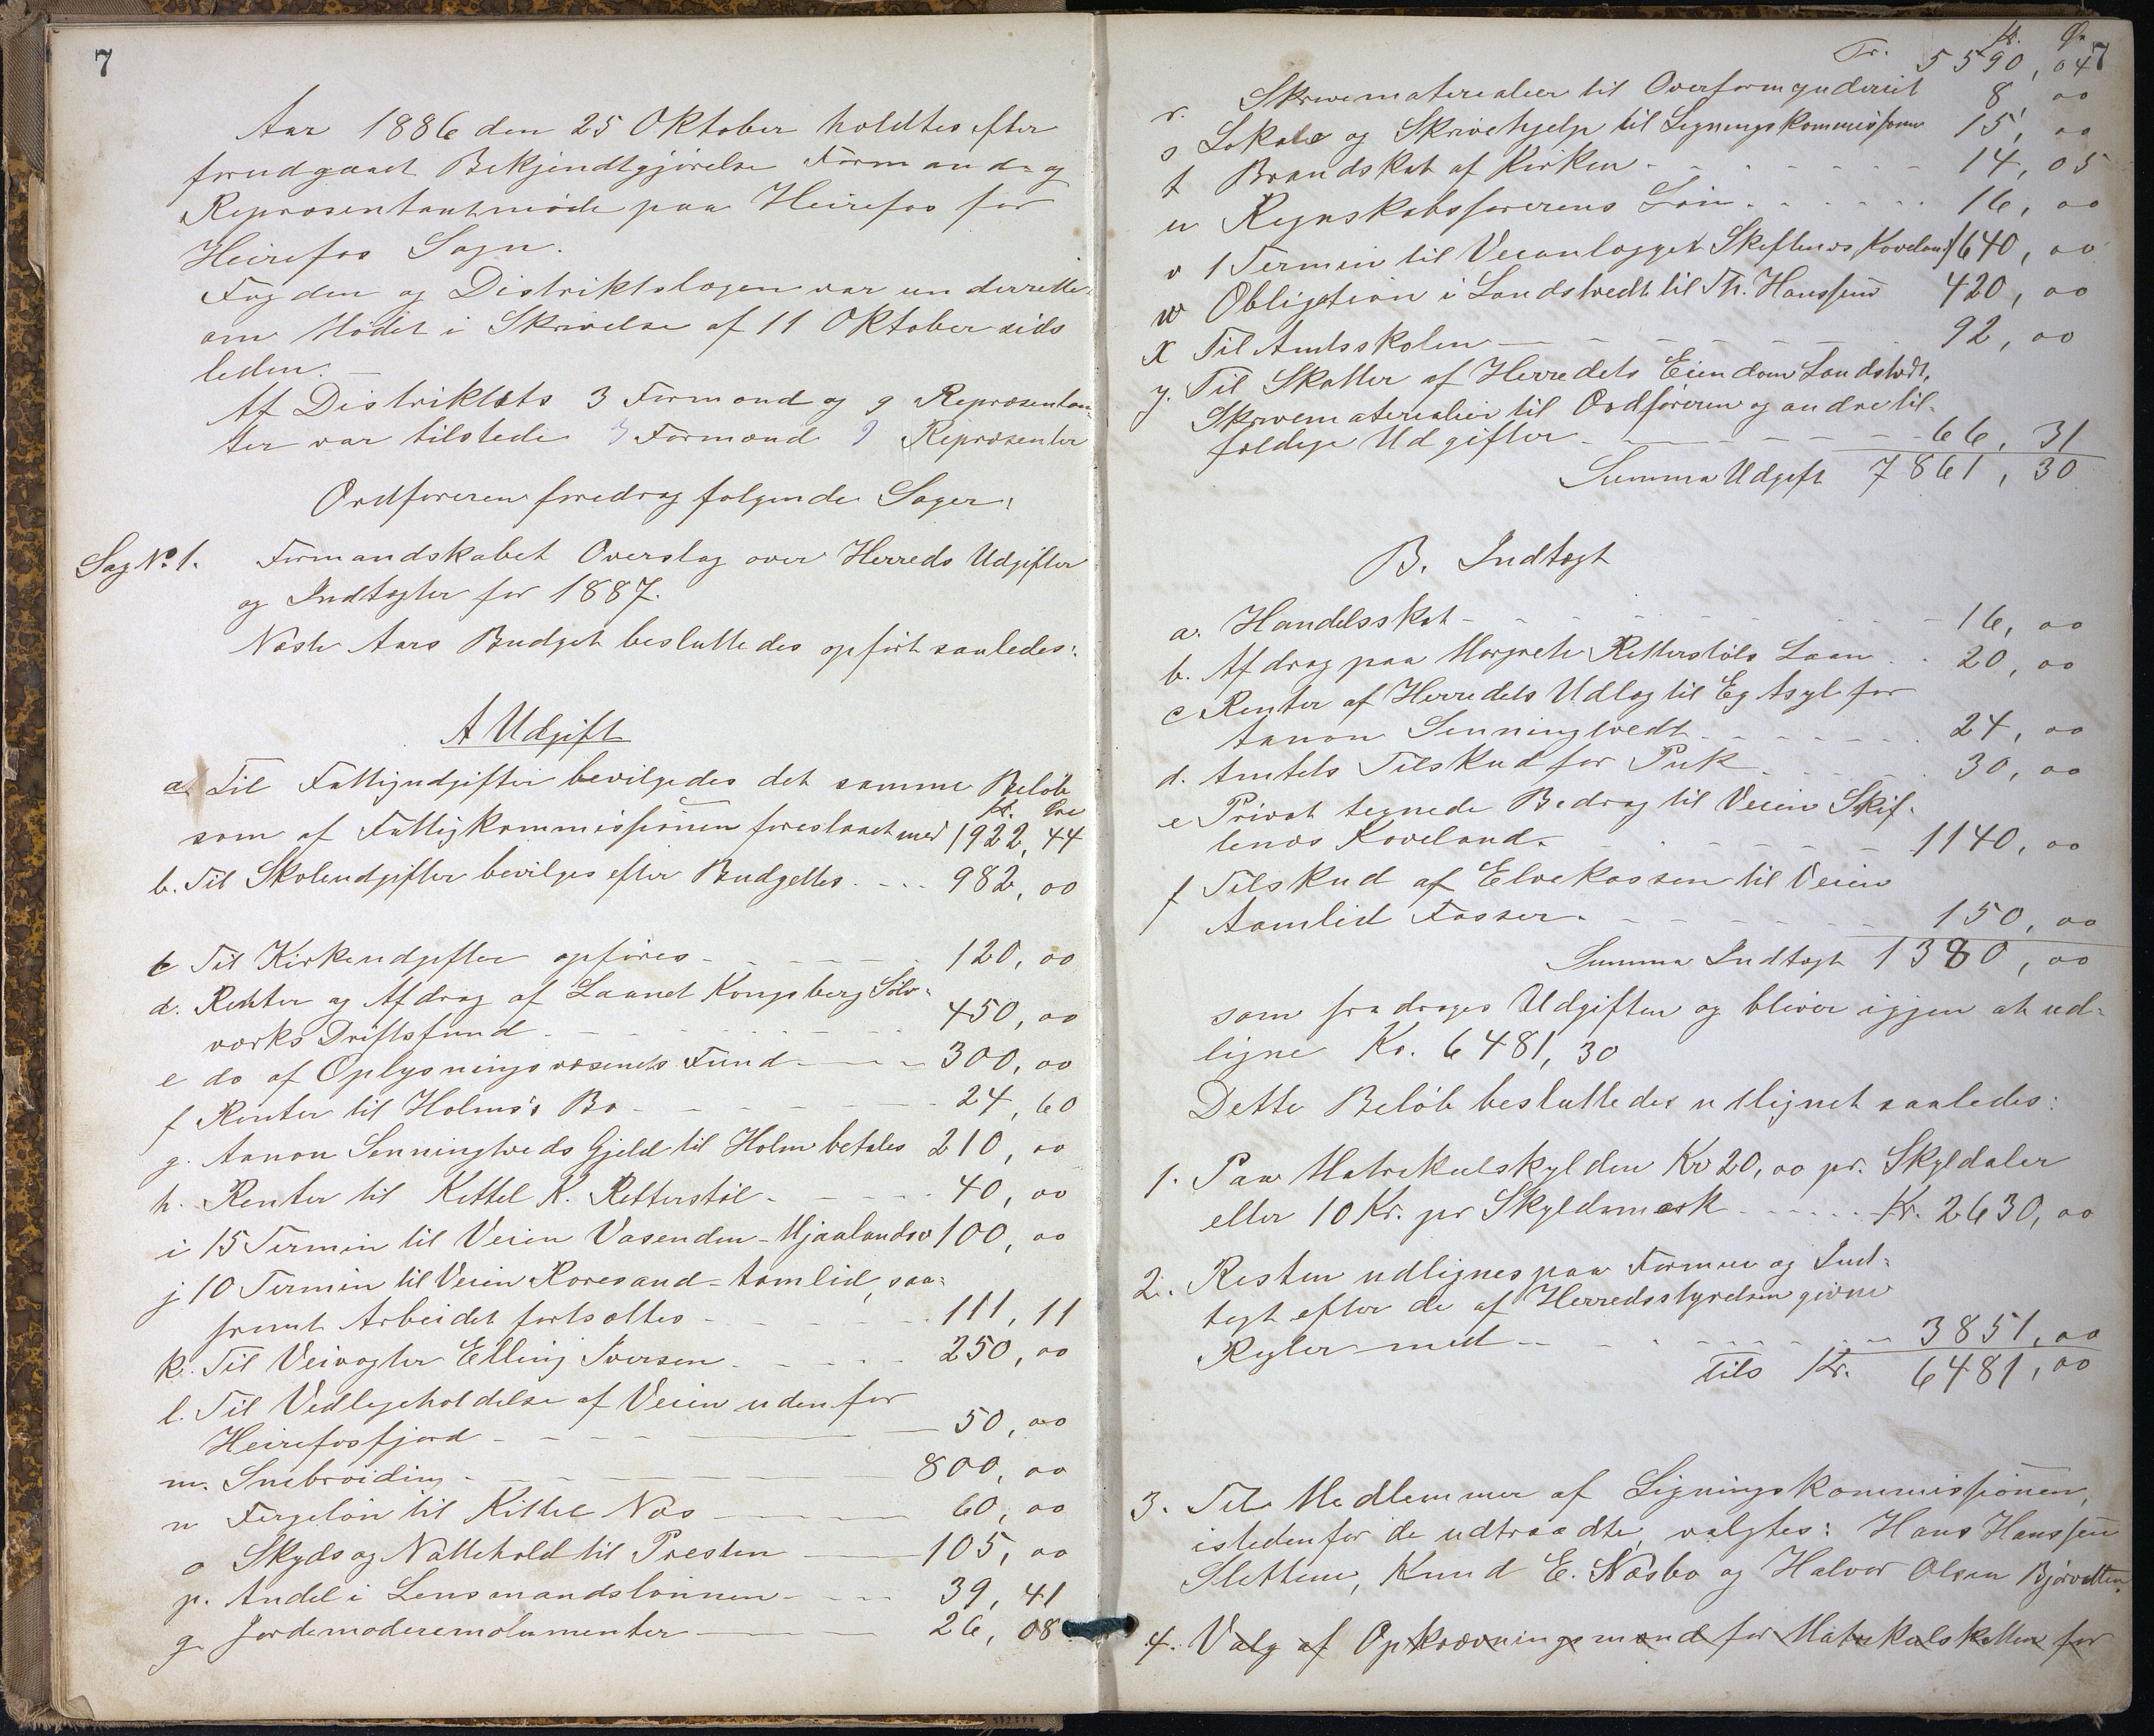 7
Aar 1886 den 25 Oktober holdtes efter
forudgaaet Bekjendtgjörelse Formand= og
Repræsentantmöde paa Heirefos for
Heirefos Sogn.
Fogden og Distriktslægen var underrettet
om Mödet i Skrivelse af 11 Oktober sids
leden. -
Af Distriktets 3 Formænd og 9 Repræsentan-
ter var tilstede 3 Formænd 9 Repræsenter
Ordföreren foredrog fölgende Sager:
Sag No 1. Formandskabet Overslag over Herreds Udgifter
og Indtægter for 1887.
Næste Aars Budget besluttedes opfört saaledes:
A Udgift
a. Til Fattigudgifter bevilgedes det samme Belöb
Kr. Öre
som af Fattigkommissionen foreslaaet med 1922, 44
b. Til Skoleudgifter bevilges efter Budgettes - - - 982, 00
c Til Kirkeudgifter opföres - - - - - 120, 00
d. Renter og Afdrag af Laanet Kongsberg Sölv=
værks Driftsfund - - - - - 450, 00
e do af Oplysningsvæsenets Fund - - - 300, 00
f Renter til Holms's Bo - - - - - 24, 60
g. Aanon Senningtveds Gjeld til Holm betales 210, 00
h. Renter til Kettel K. Retterstöl - - - - 40, 00
i 15 Termin til Veien Vasenden - Mjaalandsv 100, 00
j 10 Termin til Veien Roresand = Aamlid, saa=
fremt Arbeidet fortsættes - - - - - 111, 11
k. Til Veivogter Elling Iversen - - - - 250, 00
l. Til Vedligeholdelse af Veien udenfor
Heirefosfjord - - - - 50, 00
m. Snebröiding - - - - 800, 00
n Fergelön til Kittel Næs - - - 60, 00
o Skyds og Nattehold til Presten - - 105, 00
p. Andel i Lensmandslönnen - - - 39, 41
q. Jordemoderemolumenter - - - 26, 08
7
Kr. Ör
Tr. 5590, 04
r. Skrivematerialier til Overformynderiet 8, 00
s Lokale og Skrivehjelp til Ligningskommissionen 15, 00
t Brandskat af Kirken - - - - - 14, 05
u Regnskabsförerens Lön - - - - - 16, 00
v 1 Termin til Veianlægget Skiftenes Kaveland 1640, 00
w Obligation i Landstvedt til Th. Hanssens 420, 00
x Til Amtsskolen - - - - - 92, 00
y. Til Skatter af Herredets Eiendom Landstvdt,
Skrivematerialier til Ordföreren og andre til-
fældige Udgifter - - - - - 66, 31
Summa Udgift 7861, 30
B. Indtægt
a. Handelsskat - - - - - 16, 00
b. Afdrag paa Margrete Retterstöls Laan - - 20, 00
c Renter af Herredets Udlæg til Eg Asyl for
Aanon Senningtvedt - - - - - 24, 00
d. Amtets Tilskud for Puk - - - - 30, 00
e Privat tegnede Bedrag til Veien Skif-
tenes Kaveland. - - - - - 1140, 00
f Tilskud af Elvekassen til Veien
Aamlid Fosser - - - - - 150, 00
Summa Indtægt 1380, 00
som fradrages Udgiften og bliver igjen at ud-
ligne Kr. 6481, 30
Dette Belöb besluttedes udlignet saaledes:
1. Paa Matrikulskylden Kr 20, 00 pr. Skyldaler
eller 10 Kr. pr Skyldmark - - - - Kr. 2630, 00
2. Resten udlignes paa Formue og Ind=
tægt efter de af Herredsstyrelsen givne
Regler med - - - - - 3851, 00
Tils Kr. 6481, 00
3. Til Medlemmer af Ligningskommissionen,
istedenfor de udtraadte, valgtes: Hans Hanssen
Slettene, Knud E. Næsbo og Halvor Olsen Björvatten.
4. Valg af Opkrævningsmænd for Matrikulskatten for